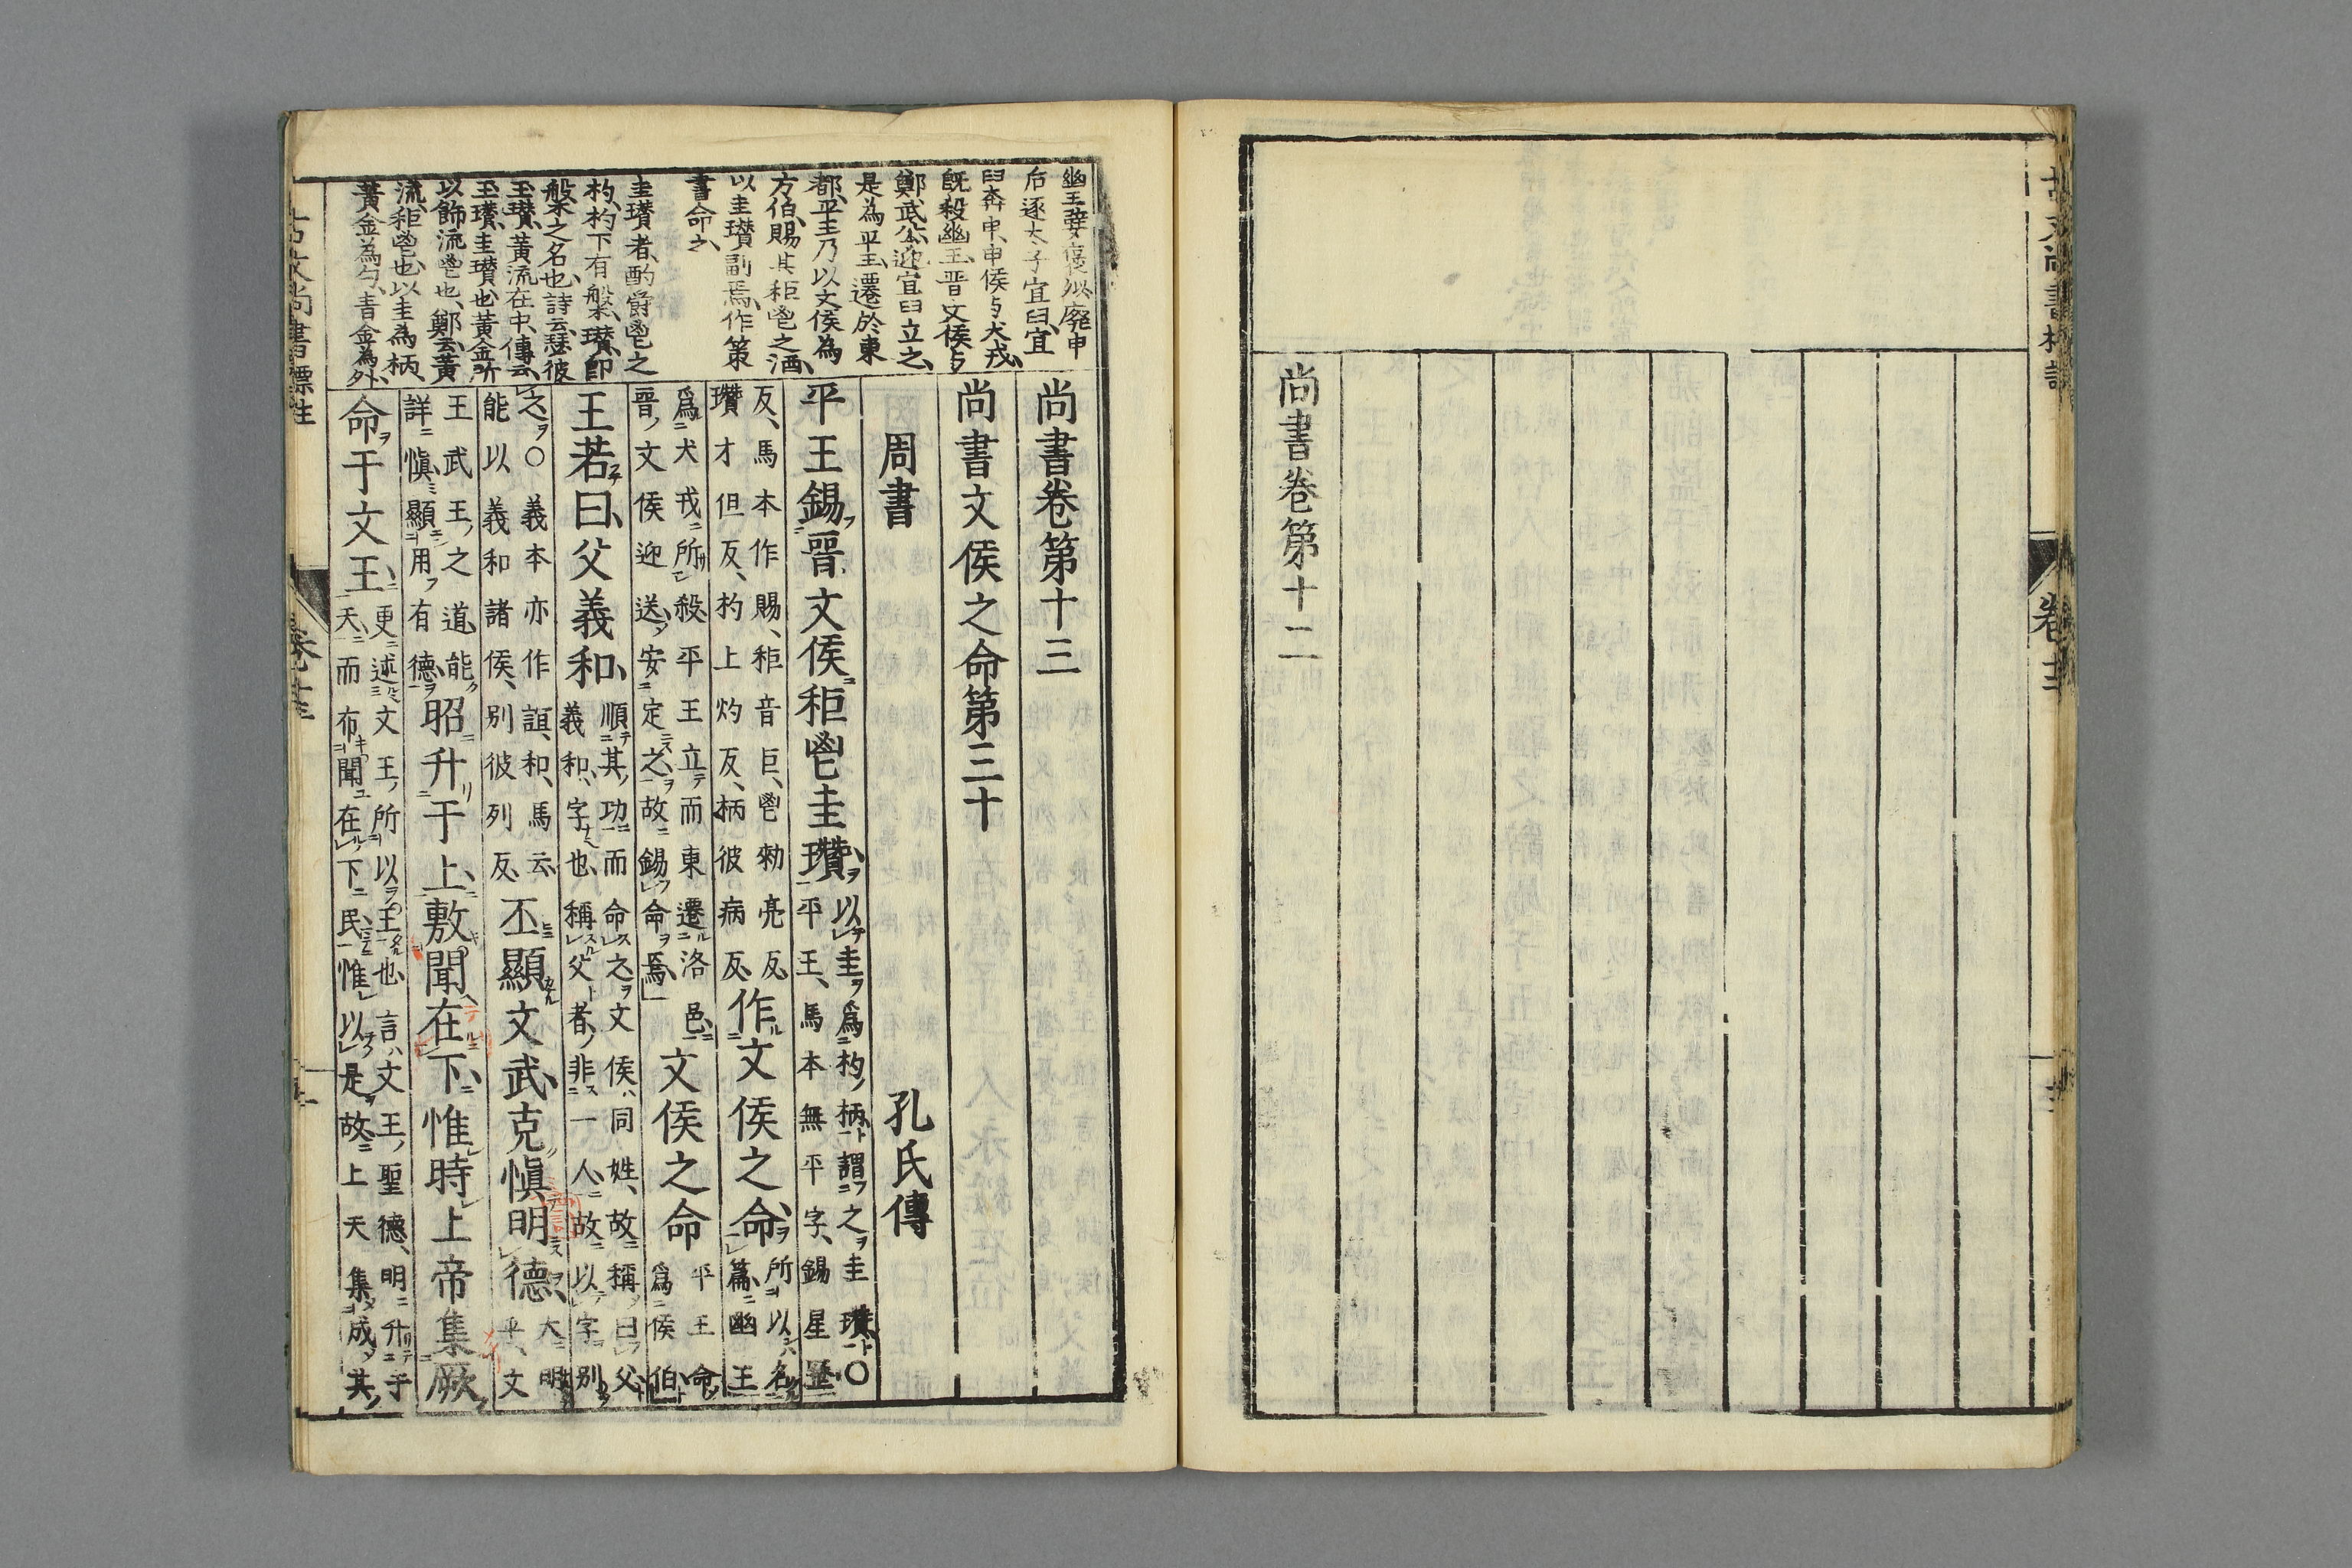 尚書卷第十二
幽王嬖褒姒廢申
后逐太子宜臼宜
臼奔申申侯与犬戎
既殺幽王晋文侯与
鄭武公迎宜臼立之
是為平王遷於東
都平王乃以文侯為
方伯賜其秬鬯之酒
以圭瓚副焉作策
書命之
圭瓚者酌鬱鬯之
杓杓下有槃瓚即
槃之名也詩云瑟彼
玉瓚黃流在中傳云
玉瓚圭瓚也黃金所
以飾流鬯也鄭云黃
流秬鬯也以圭為柄
黃金為勺青金為外
尚書卷第十三
尚書文侯之命第三十
周書 孔氏傳
平王錫晉文侯秬鬯圭瓚
以圭爲杓柄謂之圭瓚○
平王馬本無平字錫星歷
反馬本作賜秬音巨鬯勑亮反
瓚才但反杓上灼反柄彼病反
作文侯之命
所以名
篇幽王
爲犬戎所殺平王立而東遷洛邑
晉文侯迎送安定之故錫命焉
文侯之命
平王命
爲侯伯
王若曰父義和
順其功而命之文侯同姓故稱曰父
義和字也稱父者非一人故以字別
之○義本亦作誼和馬云
能以義和諸侯別彼列反
丕顯文武克愼明德
大明
乎文
王武王之道能
詳愼顯用有德
昭升于上敷聞在下惟時上帝集厥
命于文王
更述文王所以王也言文王聖德明升于
天而布聞在下民惟以是故上天集成其